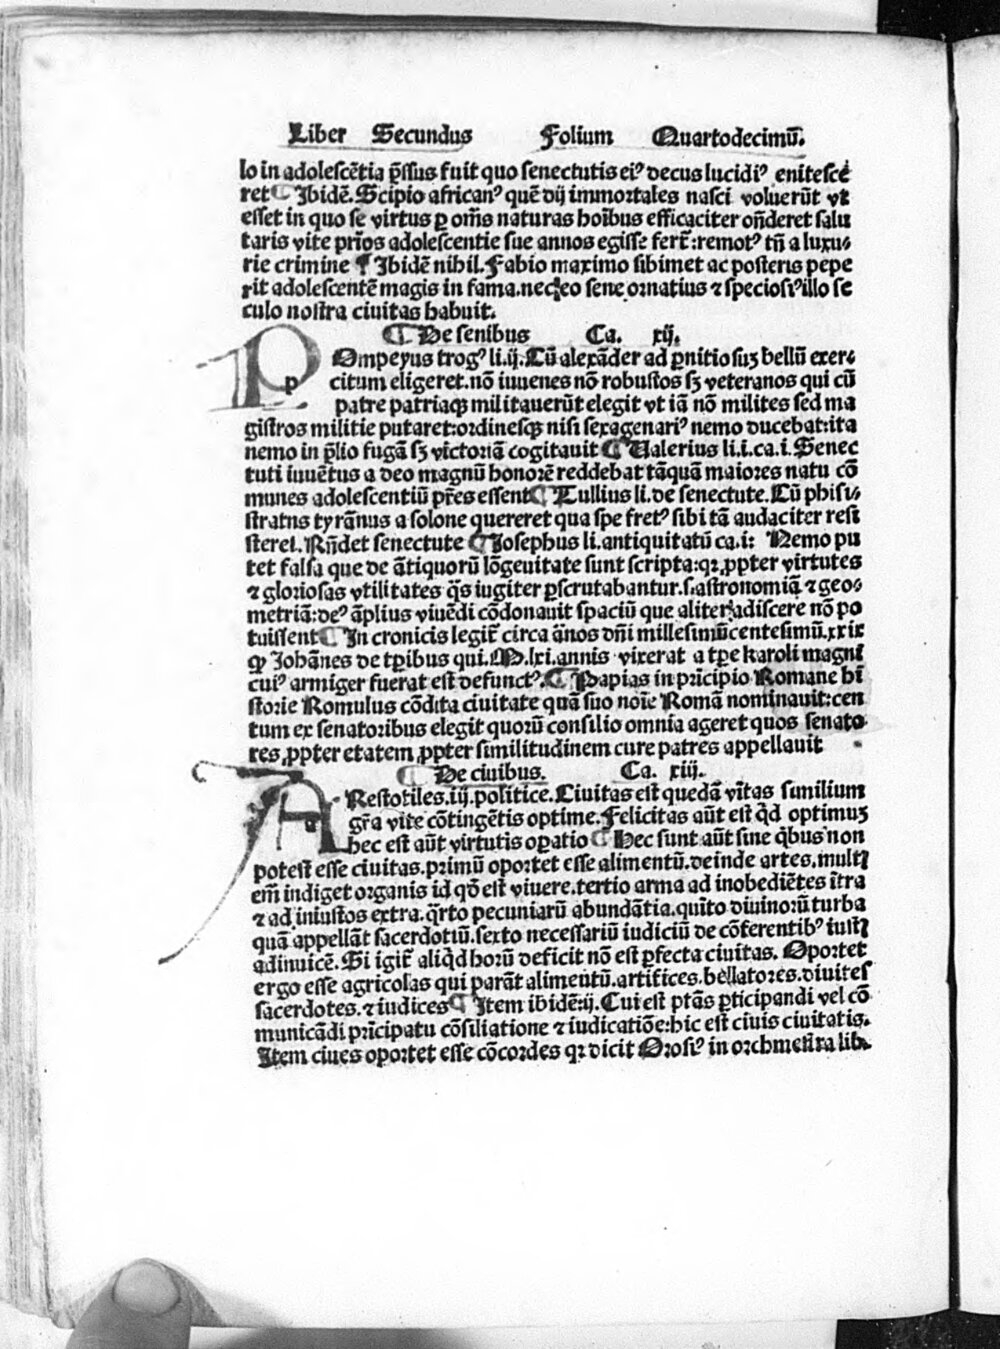 Liber Secundus Folium Quartodecimū.
lo in adolescētia p̄ssus fuit quo senectutis eiꝰ decus lucidiꝰ enitescē
ret ¶ Ibidē. Scipio africanꝰ quē dij immortales nasci voluerūt vt
esset in quo se virtus ꝑ om̄s naturas hoībus efficaciter on̄deret salu
taris vite prīos adolescentie sue annos egisse fert̄: remotꝰ tn̄ a luxu-
rie crimine ¶ Ibidē nihil. Fabio maximo sibimet ac posteris pepe
rit adolescentē magis in fama. necꝫ eo sene ornatius ⁊ speciosiꝰ illo se
culo nostra ciuitas habuit.
¶ De senibus Ca. xij.
POmpeyus trogꝰ li. ij. Cū alexāder ad ꝑnitiosuꝫ bellū exer-
citum eligeret. nō iuuenes nō robustos sꝫ veteranos qui cū
patre patriaqꝫ militauerūt elegit vt iā nō milites sed ma
gistros militie putaret: ordinesqꝫ nisi sexagenariꝰ nemo ducebat: ita
nemo in p̄lio fugā sꝫ victoriā cogitauit ¶ Ualerius li. i. ca. i. Senec
tuti iuuētus a deo magnū honorē reddebat tāquā maiores natu cō
munes adolescentiū pr̄es essent ¶ Tullius li. de senectute. Cū phisi-
stratus tyrānus a solone quereret qua spe fretꝰ sibi tā audaciter resi
steret. Rn̄det senectute ¶ Josephus li. antiquitatū ca. i: Nemo pu
tet falsa que de ātiquorū lōgeuitate sunt scripta: qꝛ ꝓpter virtutes
⁊ gloriosas vtilitates q̄s iugiter ꝑscrutabantur. s. astronomiā ⁊ geo-
metriā: deꝰ āplius viuēdi cōdonauit spaciū que aliter adiscere nō po
tuissent ¶ In cronicis legit̄ circa ānos dn̄i millesimūcentesimū. xxix
ꝙ Johānes de tꝑibus qui. M. lxi. annis vixerat a tꝑe karoli magni
cuiꝰ armiger fuerat est defunctꝰ. ¶ Papias in pricipio Romane hi
storie Romulus cōdita ciuitate quā suo noīe Romā nominauit: cen
tum ex senatoribus elegit quorū consilio omnia ageret quos senato
res, ꝓpter etatem, ꝓpter similitudinem cure patres appellauit
¶ De ciuibus. Ca. xiij.
ARestotiles. iij. politice. Ciuitas est quedā vītas similium
gr̄a vite cōtingētis optime. Felicitas aūt est q̄d optimuꝫ
hec est aūt virtutis oꝑatio ¶ Hec sunt aūt sine q̄bus non
potest esse ciuitas. primū oportet esse alimentū. deinde artes. multꝭ
em̄ indiget organis id qd̄ est viuere. tertio arma ad inobediētes ītra
⁊ ad iniustos extra. q̄rto pecuniarū abundātia. quīto diuinorū turba
quā appellāt sacerdotiū. sexto necessariū iudiciū de cōferentibꝰ iustꝭ
adinuicē. Si igit̄ aliq̄d horū deficit nō est ꝑfecta ciuitas. Oportet
ergo esse agricolas qui parāt alimentū. artifices. bellatores. diuites
sacerdotes. ⁊ iudices ¶ Item ibidē: ij. Cui est ptās ꝑticipandi vel cō
municādi pricipatu cōsiliatione ⁊ iudicatiōe: hic est ciuis ciuitatis.
Item ciues oportet esse cōcordes qꝛ dicit Orosiꝰ in orchmestra lib.